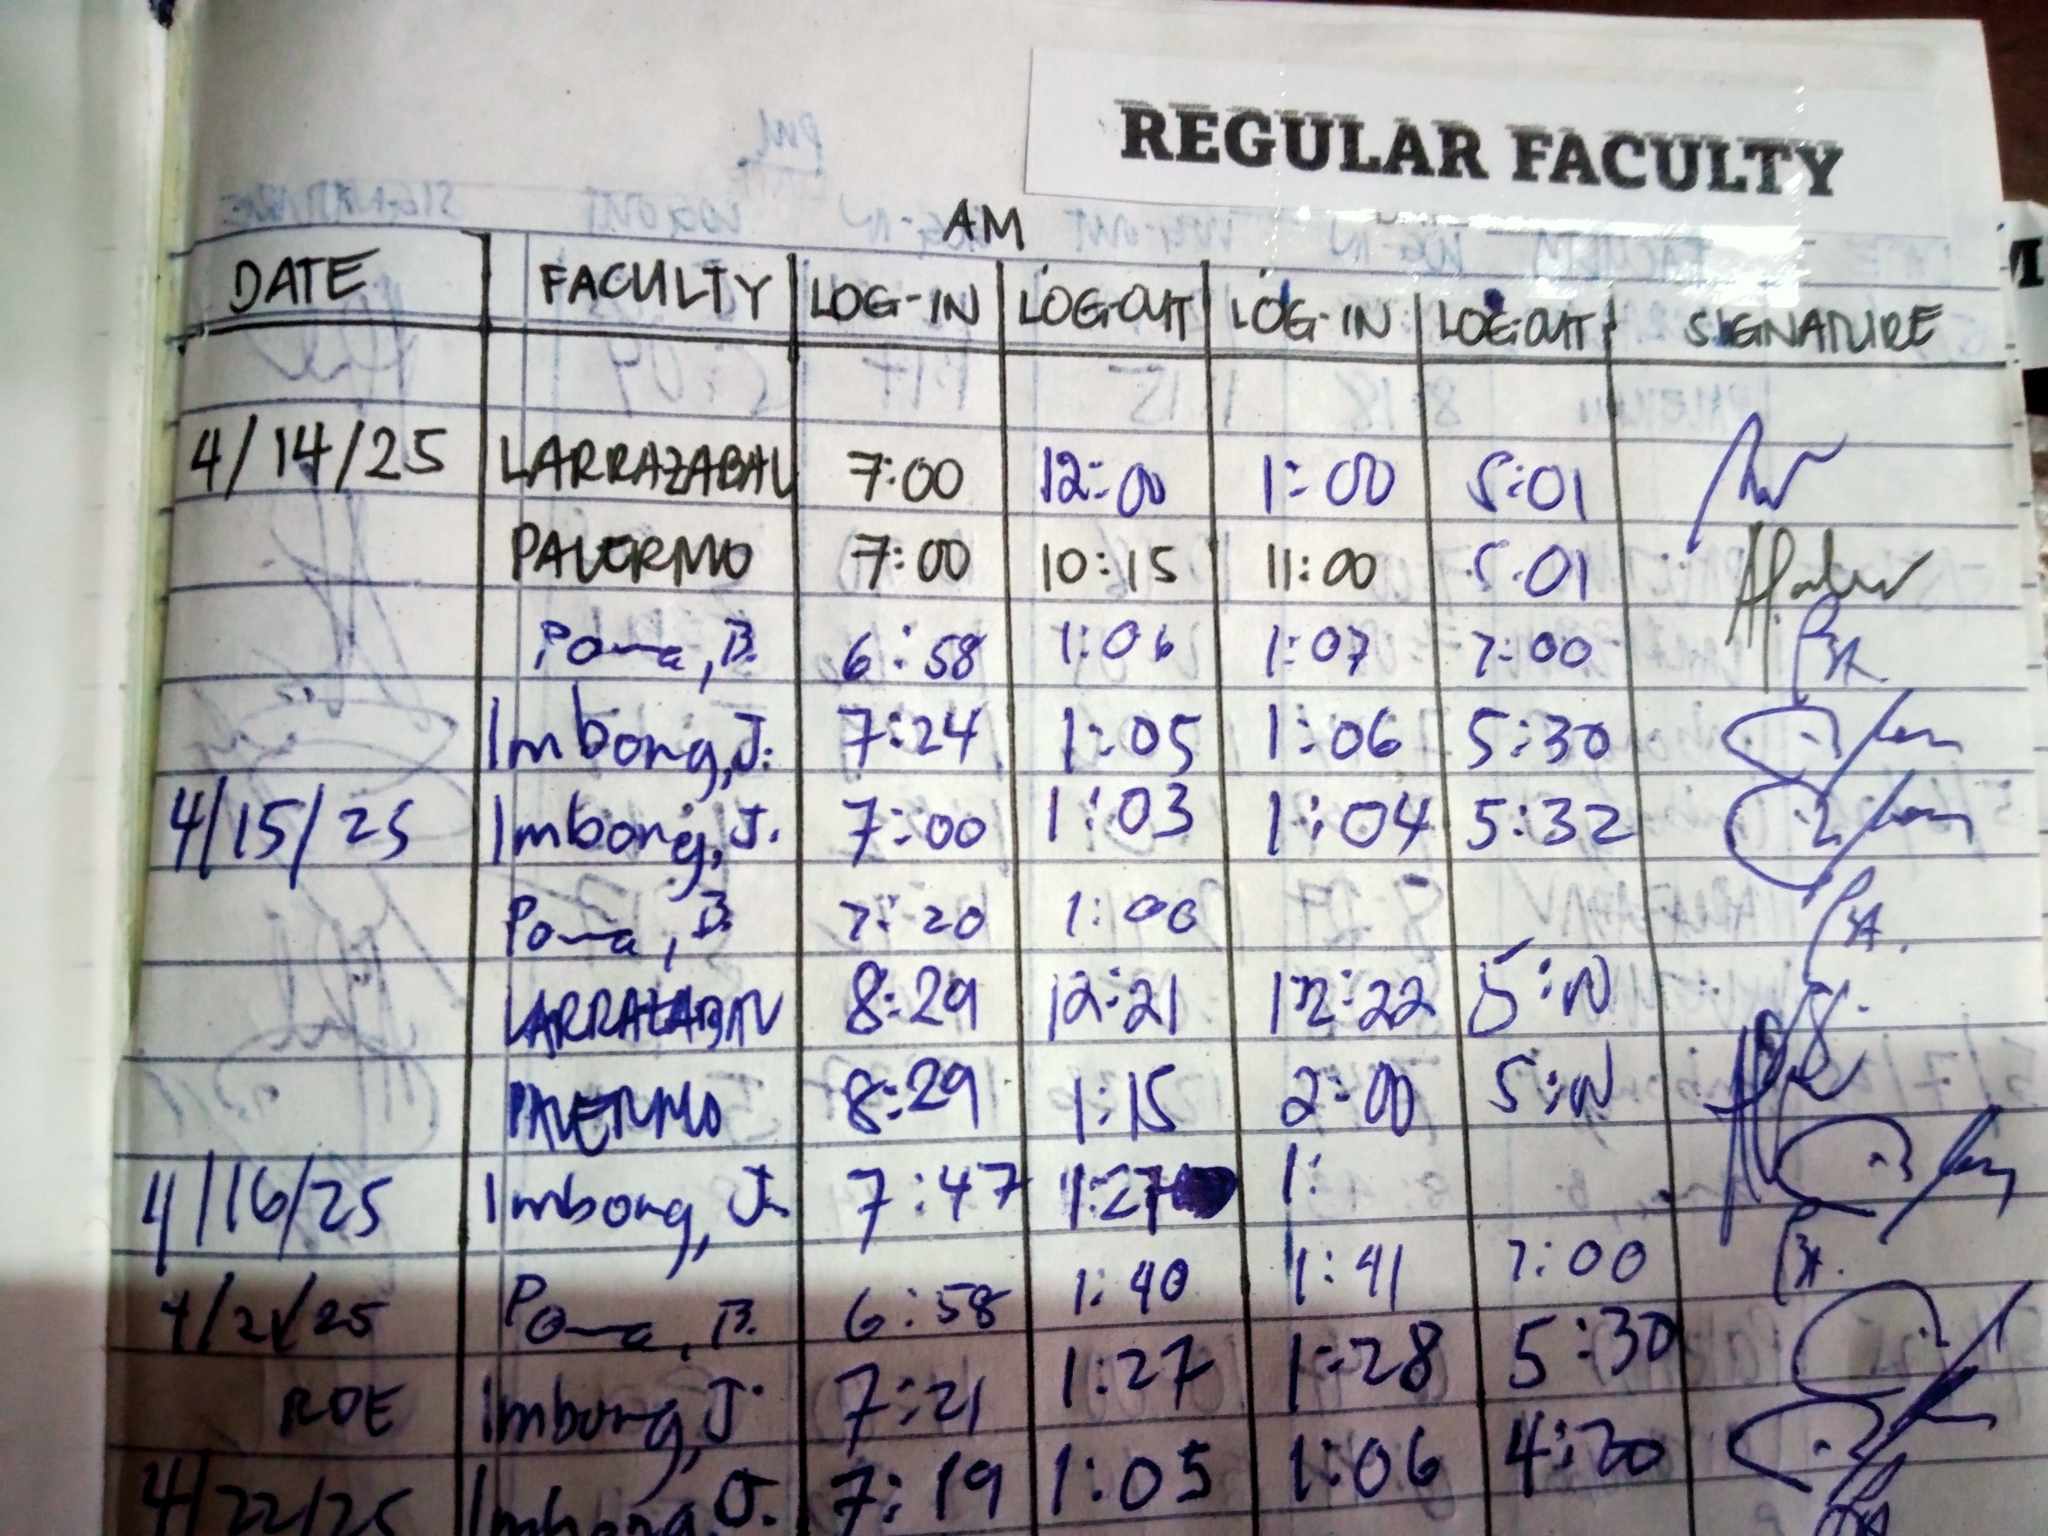 REGULAR FACULTY
AM
DATE FACULTY LOG-IN LOG-OUT LOG-IN LOG-OUT SIGNATURE
4/14/25 LARRAZABAL 7:00 12:00 1:00 5:01
PALERMO 7:00 10:15 11:00 5:01
Poma, B. 6:58 1:06 1:07 7:00
Imbong, J. 7:24 1:05 1:06 5:30
4/15/25 Imbong, J. 7:00 1:03 1:04 5:32
Poma, B. 7:20 1:00
LARRAZABAL 8:29 12:21 12:22
PALERMO 8:29 1:15 2:00
4/16/25 Imbong, J. 7:47 1:27 1:
4/21/25 Poma, B. 6:58 1:40 1:41 7:00
Imbong, J. 7:21 1:27 1:28 5:30
4/22/25 Imbong, J. 7:19 1:05 1:06 4:30